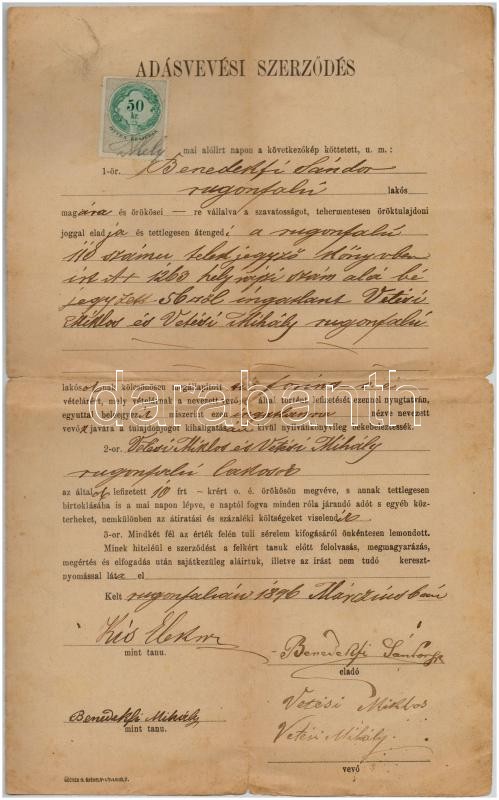 ADÁSVEVÉSI SZERZŐDÉS
50
kr.
mai alólirt napon a következőkép köttetett, u. m.:
1-ör. Benedekfi Sándor
rugonfalú lakós
magára és örökösei — re vállalva a szavatosságot, tehermentesen öröktulajdoni
joggal eladja és tettlegesen átengedi a rugonfalú
110 számu telekjegyző könyvben
irt A+ 1263 helyrajzi szám alá bé
jegyzett ingatlant Vetési
Miklos és Vetési Mihály rugonfalú
darabanth
lakós kölcsönösen megállapitott tíz forint
vételárért, mely vételárnak a nevezett vevő által történt lefizetését ezennel nyugtatván,
egyuttal beleegyezik miszerint ezen ingatlanra nézve nevezett
vevők javára a tulajdonjogot kihallgatása kivül nyilvánkönyvileg bekebeleztessék.
2-or. Vetési Miklos és Vetési Mihály
rugonfalú lakosok
az által lefizetett 10 frt — krért o. é. örökösön megvéve, s annak tettlegesen
birtoklásába is a mai napon lépve, e naptól fogva minden róla járandó adót s egyéb köz-
terheket, nemkülönben az átiratási és százaléki költségeket viselendik
3-or. Mindkét fél az érték felén tuli sérelem kifogásáról önkéntesen lemondott.
Minek hiteléül e szerződést a felkért tanuk előtt felolvasás, megmagyarázás,
megértés és elfogadás után sajátkezüleg aláirtuk, illetve az irást nem tudó kereszt-
nyomással látta el
Kelt rugonfalván 1896 Márczius
Kis Elek
mint tanu.
Benedekfi Sándor
eladó
Benedekfi Mihály
mint tanu.
Vetési Miklos
Vetési Mihály.
vevő